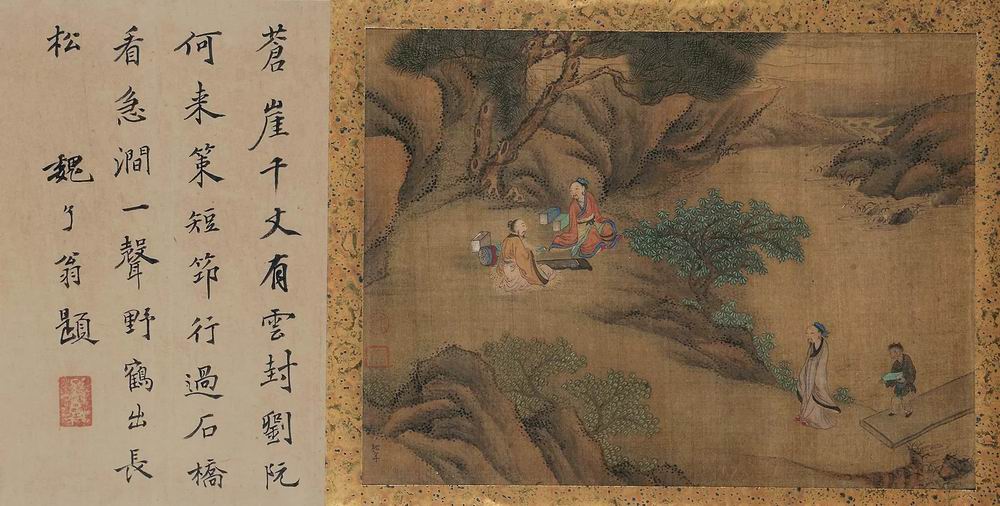 蒼崖千丈有雲封劉阮
何来策短笻行過石橋
看急澗一聲野鶴出長
松 魏了翁題